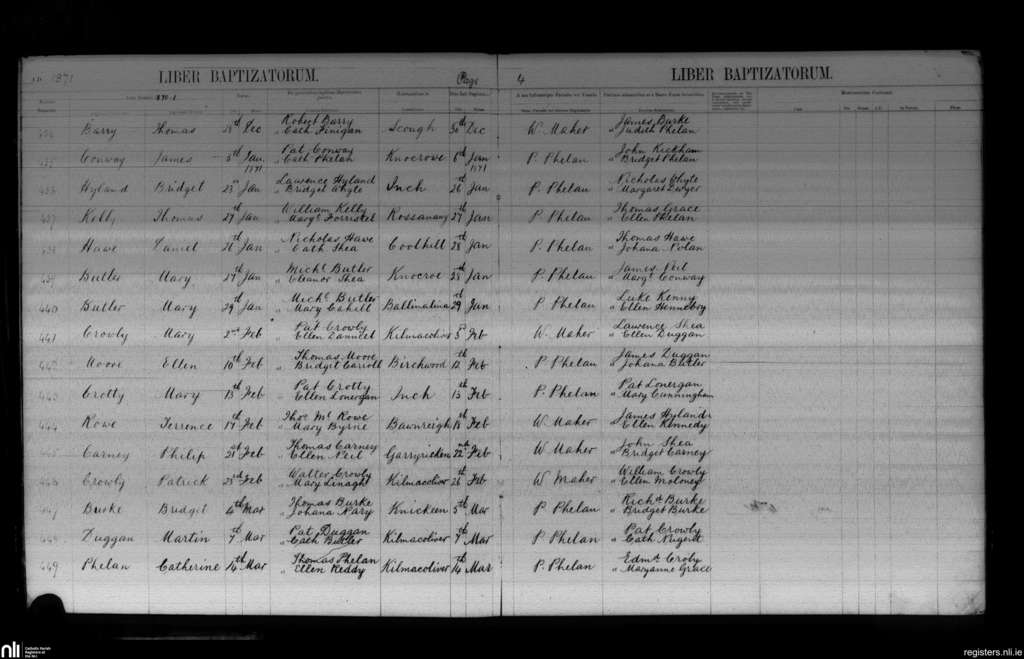 1871
LIBER BAPTIZATORUM. Page 4 LIBER BAPTIZATORUM.
1870-1
Barry Thomas 28th Dec Robert Barry Scough 30th Dec W. Maher James Burke
" Cath Finigan " Judith Phelan
Conway James 5th Jan Pat Conway Knocrowe 8th Jan P. Phelan John Kickham
1871 " Cath Phelan 1871 " Bridget Phelan
Hyland Bridget 23rd Jan Lawrence Hyland Inch 26th Jan P. Phelan Nicholas Whyte
" Bridget Whyte " Margaret Dwyer
437 Kelly Thomas 27th Jan William Kelly Rossanany 27th Jan P. Phelan Thomas Grace
" Margt Forristel " Ellen Phelan
438 Hawe Daniel 26th Jan Nicholas Hawe Coolhill 28th Jan P. Phelan Thomas Hawe
" Cath Shea " Johana Nolan
439 Butler Mary 27th Jan Michl Butler Knocroe 28th Jan P. Phelan James Neil
" Eleanor Shea " Margt Conway
440 Butler Mary 29th Jan Michl Butler Ballinalina 29th Jan P Phelan Luke Kenny
" Mary Cahill " Ellen Hennebry
441 Crowly Mary 2nd Feb Pat Crowly Kilmacoliver 5th Feb W. Maher Lawrence Shea
" Ellen " Ellen Duggan
442 Moore Ellen 10th Feb Thomas Moore Birchwood 12th Feb P Phelan James Duggan
" Bridget Carroll " Johana Butler
443 Crotty Mary 13th Feb Pat Crotty Inch 15th Feb P. Phelan Pat Lonergan
" Ellen Lonergan " Mary Cunningham
444 Rowe Terrence 17th Feb Thos Mc Rowe Bawnreigh 18th Feb W. Maher James Hyland
" Mary Byrne " Ellen Kennedy
445 Carney Philip 21st Feb Thomas Carney Garryricken 22nd Feb W Maher John Shea
" Ellen Neil " Bridget Carney
446 Crowly Patrick 23rd Feb Walter Crowly Kilmacoliver 26th Feb W Maher William Crowly
" Mary Linaght " Ellen Moloney
447 Burke Bridget 4th Mar Thomas Burke Knickeen 5th Mar P Phelan Richd Burke
" Johana Nary " Bridget Burke
448 Duggan Martin 7th Mar Pat Duggan Kilmacoliver 7th Mar P. Phelan Pat Crowly
" Cath Butler " Cath Nugent
449 Phelan Catherine 14th Mar Thomas Phelan Kilmacoliver 14th Mar P. Phelan Edmd Croby
" Ellen Reddy " Maryanne Grace
nli Catholic Parish
Registers at
the NLI
registers.nli.ie